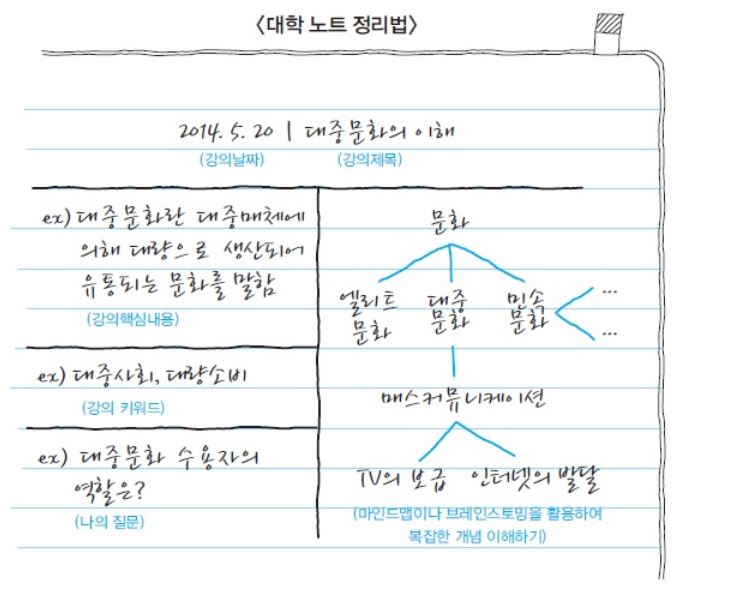 <대학 노트 정리법>
2014. 5. 20 | 대중문화의 이해
(강의날짜) (강의제목)
ex) 대중문화란 대중매체에
의해 대량으로 생산되어
유통되는 문화를 말함
(강의핵심내용)
ex) 대중사회, 대량소비
(강의 키워드)
ex) 대중문화 수용자의
역할은?
(나의 질문)
문화
엘리트 대중 민속
문화 문화 문화
...
...
매스커뮤니케이션
TV의 보급 인터넷의 발달
(마인드맵이나 브레인스토밍을 활용하여
복잡한 개념 이해하기)